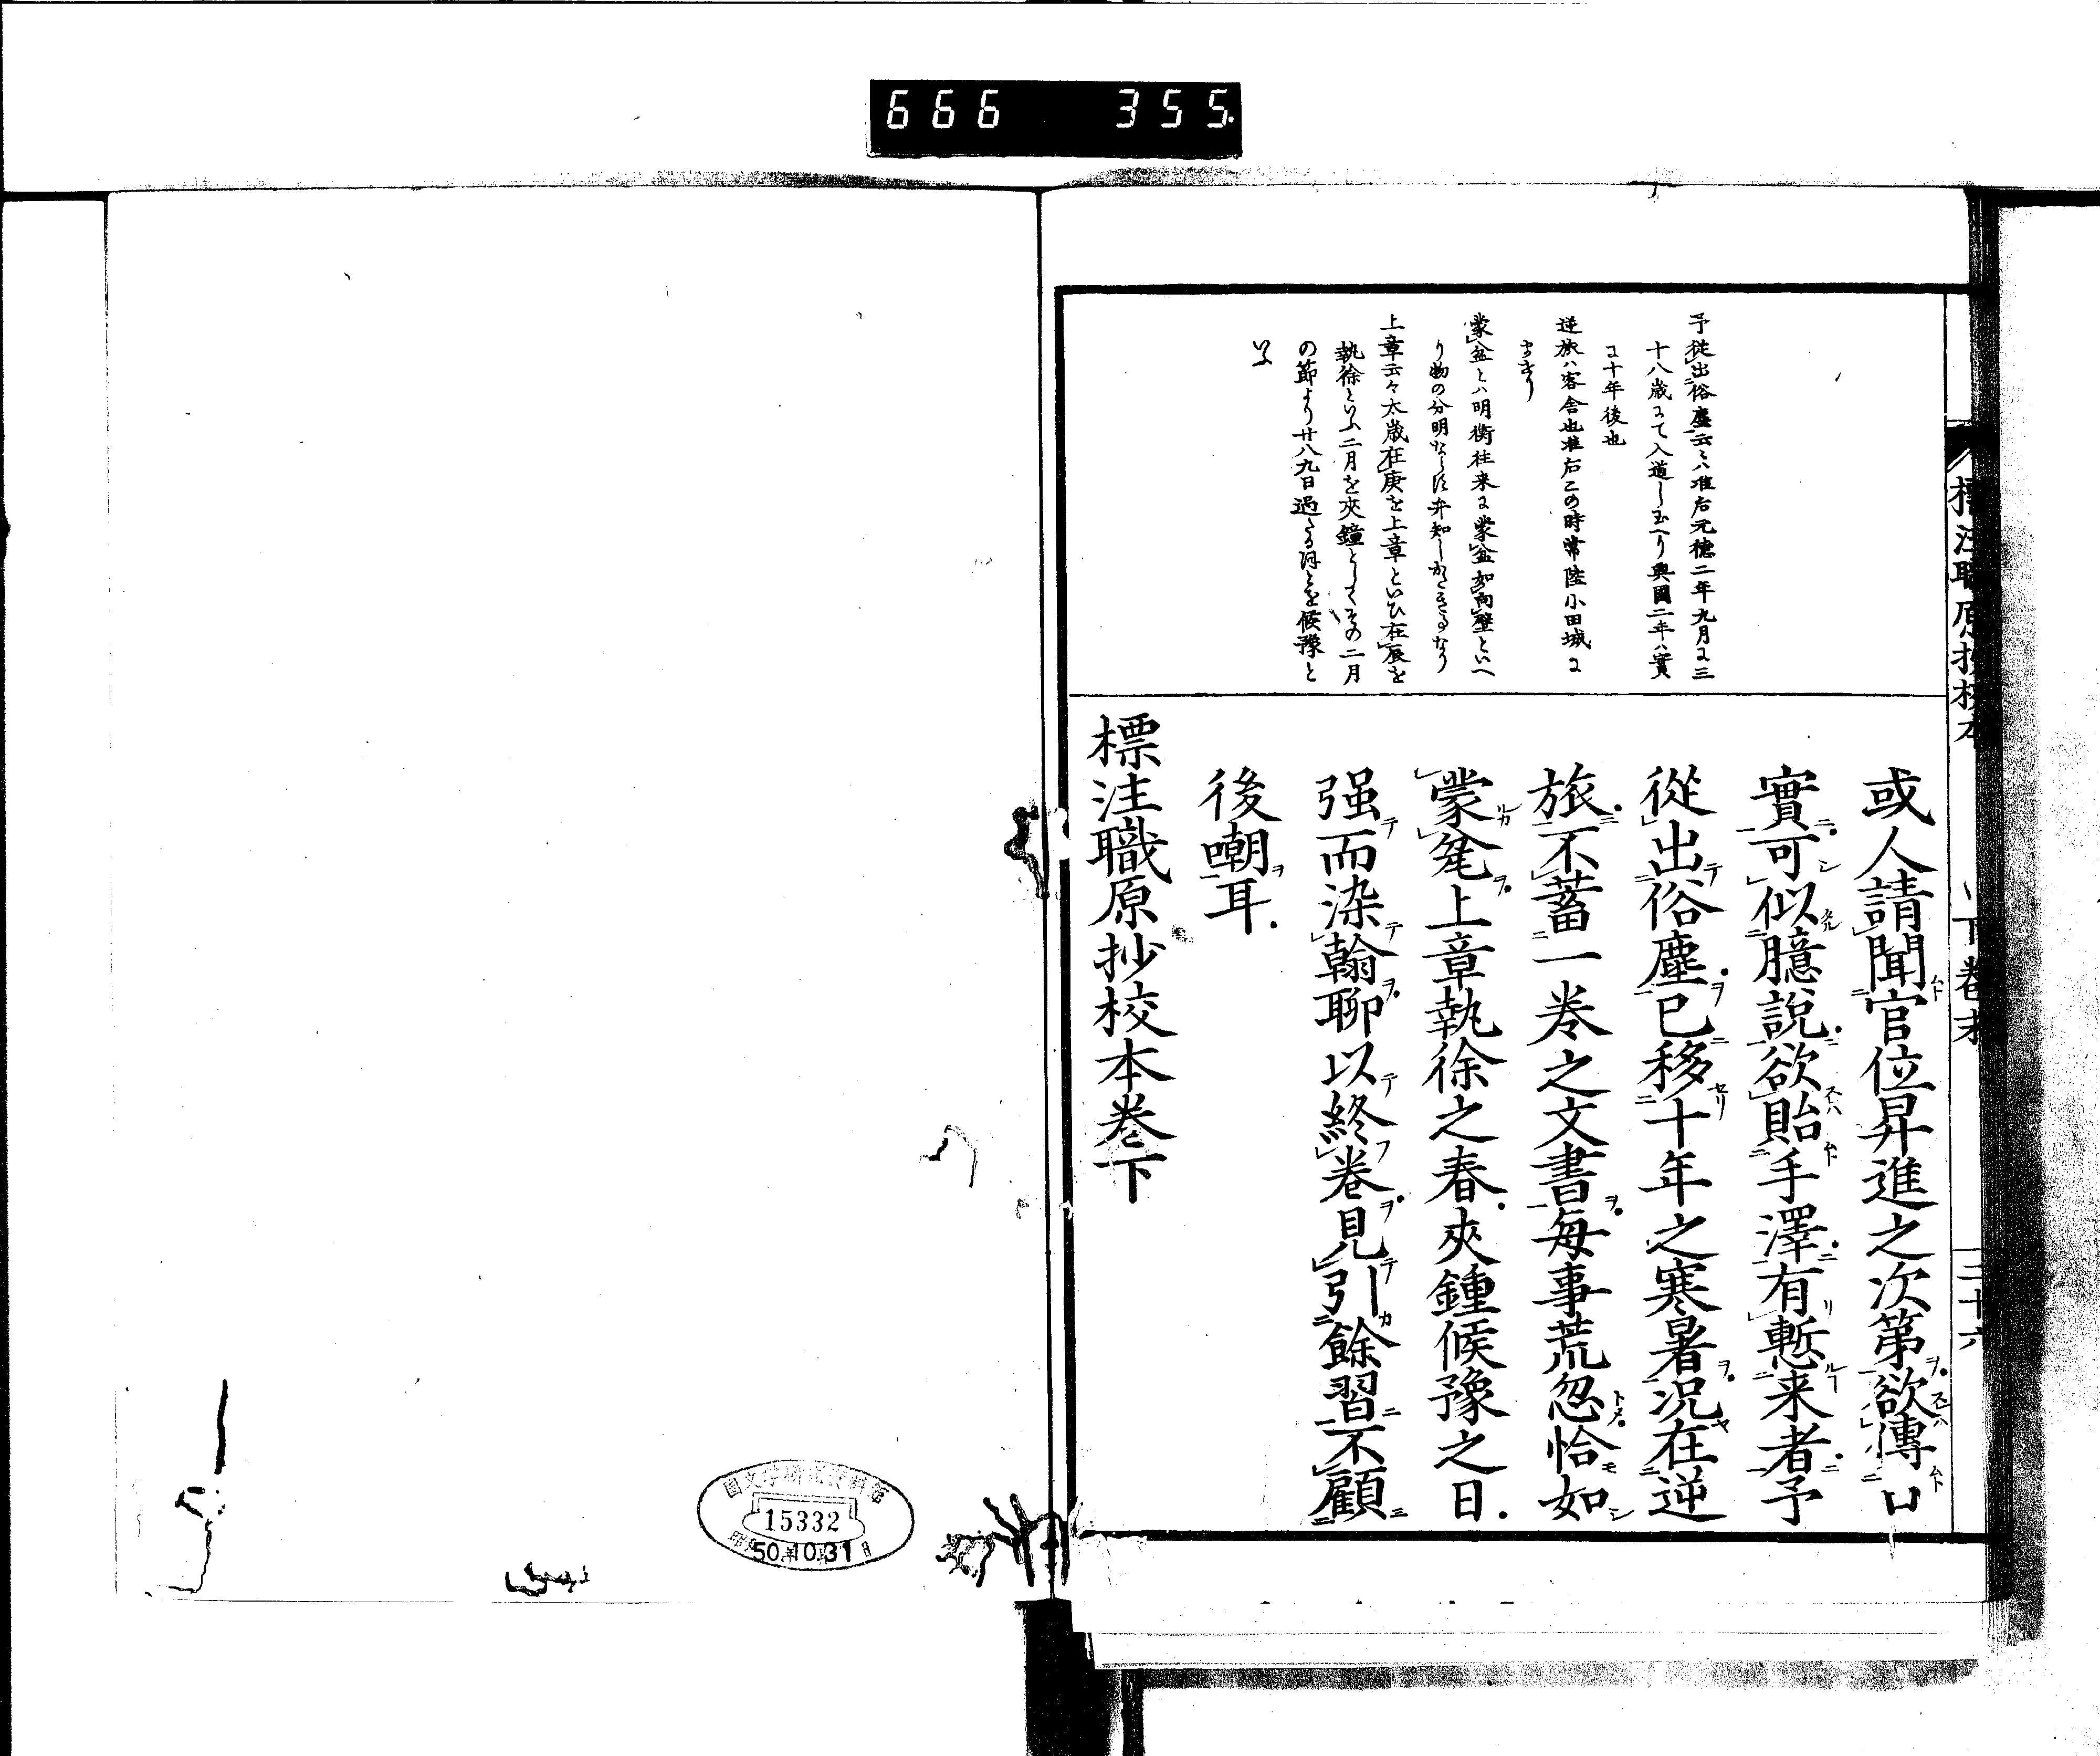 666 355.
標注職原抄校本
下巻末
三十六
予従出俗塵云々ハ准后元徳二年九月に三
十八歳にて入道し玉へり興国二年ハ實
に十年後也
逆旅ハ客舎也准后この時常陸小田城に
まませり
蒙盆とハ明衡往来に蒙盆如向壁といへ
り物の分明ならす弁知しかたきをなり
上章云々太歳在庚を上章といひ在辰を
執徐といふ二月を夾鐘としてその二月
の節より廿八九日過たるほとを候豫と
いふ
或人請聞官位昇進之次第欲傳口
實可似臆説欲貽手澤有慙来者予
從出俗塵已移十年之寒暑况在逆
旅不蓄一巻之文書毎事荒忽恰如
蒙瓫上章執徐之春夾鍾候豫之日
强而染翰聊以終巻見引餘習不顧
後嘲耳
標注職原抄校本巻下
國文学研究資料館
15332
50.10.31